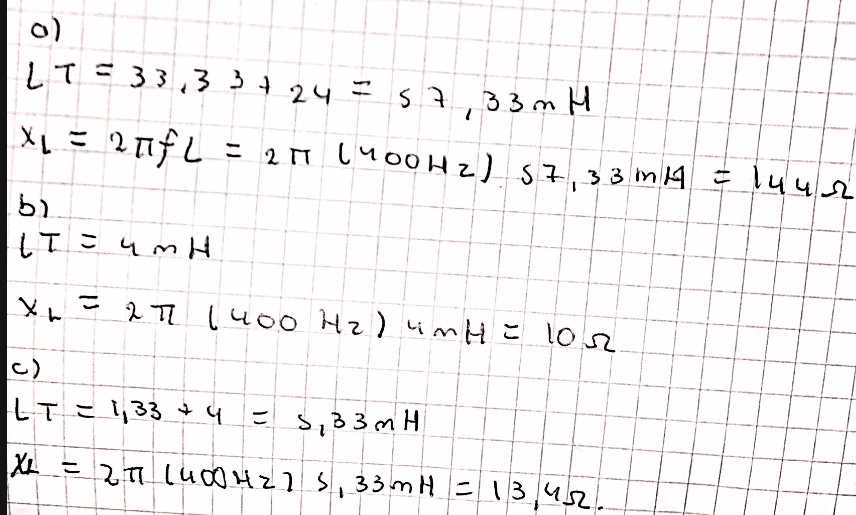 a)
LT = 33,33 + 24 = 57,33 mH
XL = 2πfL = 2π (400Hz) 57,33 mH = 144Ω
b)
LT = 4 mH
XL = 2π (400 Hz) 4mH = 10Ω
c)
LT = 1,33 + 4 = 5,33mH
XL = 2π (400Hz) 5,33mH = 13,4Ω.